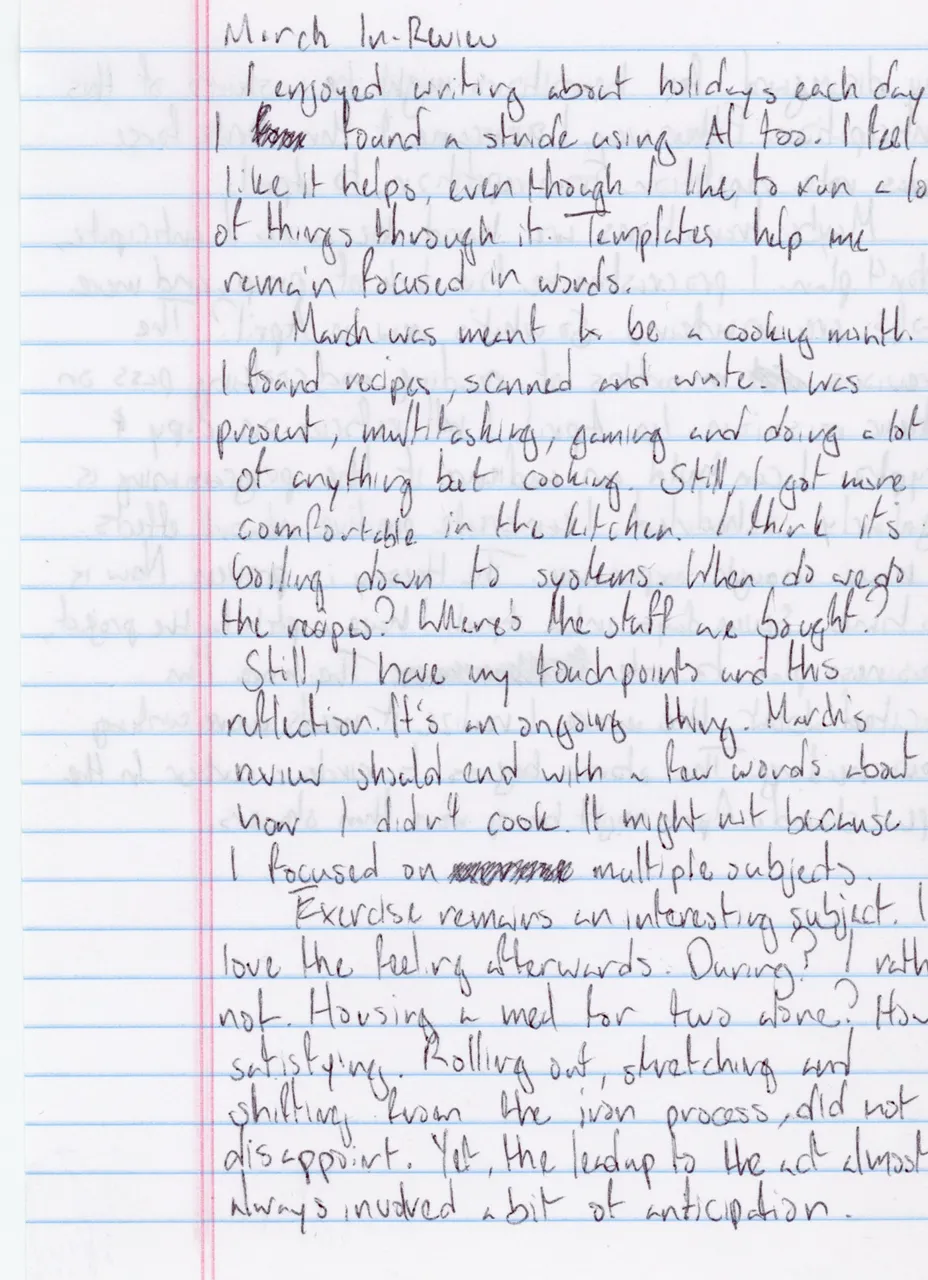 March In-Review
I enjoyed writing about holidays each day
I found a stride using AI too. I feel
like it helps, even though I like to run a lo
of things through it. Templates help me
remain focused in words.
March was meant to be a cooking month.
I found recipes, scanned and wrote. I was
present, multitasking, gaming and doing a lot
of anything but cooking. Still, I got more
comfortable in the kitchen. I think it's
boiling down to systems. When do we do
the recipes? Where's the stuff we bought?
Still, I have my touchpoints and this
reflection. It's an ongoing thing. March's
review should end with a few words about
how I didn't cook. It might not because
I focused on multiple subjects.
Exercise remains an interesting subject. I
love the feeling afterwards. During? I rath
not. Housing a meal for two alone? How
satisfying. Rolling out, stretching and
shifting from the iron process, did not
disappoint. Yet, the leadup to the act almost
always involved a bit of anticipation.